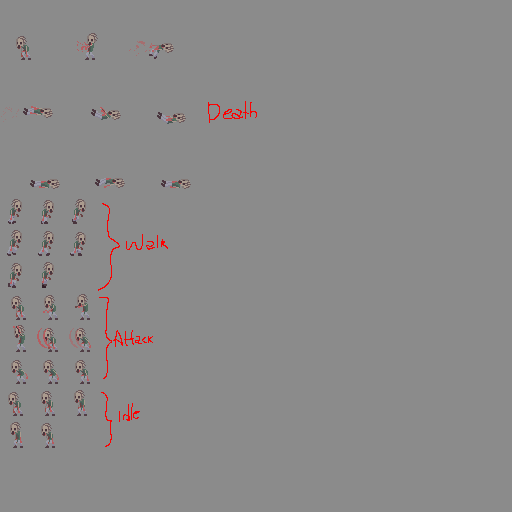 Death
Walk
Attack
Idle